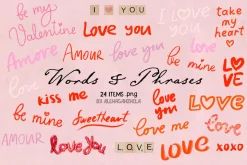 be my
Valentine
I ♥ YOU
Love you
I love
you
take
my
heart
Amore
AMOUR
love you
be mine
Words & Phrases
24 ITEMS .PNG
LO
VE
U
Love
kiss me
be mine
Sweetheart
love me
LOVE
Love
AMOUR
love you
L.O.V.E.
love
xoxo